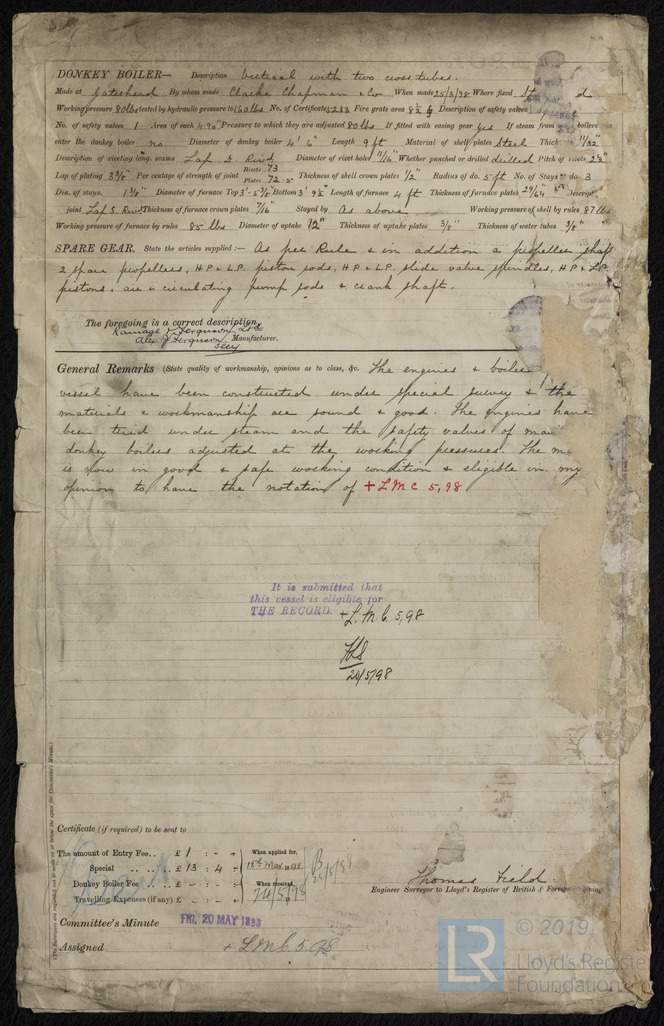 DONKEY BOILER— Description Vertical with two cross tubes.
Made at Gateshead By whom made Clarke Chapman & Co When made 25/3/98 Where fixed
Working pressure 80 lbs tested by hydraulic pressure to 160 lbs No. of Certificate 5213 Fire grate area 8½ Description of safety valves
No. of safety valves 1 Area of each 4.90" Pressure to which they are adjusted 80 lbs If fitted with easing gear yes If steam from boilers can
enter the donkey boiler no Diameter of donkey boiler 4' 6" Length 9 ft Material of shell plates Steel Thick 11/32"
Description of riveting long. seams Lap D. Rivd Diameter of rivet holes 11/16" Whether punched or drilled drilled Pitch of rivets 2½"
Lap of plating 3⅜" Per centage of strength of joint Rivets 73 Plates 72.5 Thickness of shell crown plates ½" Radius of do. 5 ft No. of Stays to do. 3
Dia. of stays. 1⅜" Diameter of furnace Top 3'-5⅝" Bottom 3' 9½" Length of furnace 4 ft Thickness of furnace plates 29/64" Descript
joint Lap S. Rivd Thickness of furnace crown plates 7/16" Stayed by As above Working pressure of shell by rules 87 lbs
Working pressure of furnace by rules 85 lbs Diameter of uptake 12" Thickness of uptake plates 3/8" Thickness of water tubes 3/8"
SPARE GEAR. State the articles supplied:— As per Rule & in addition a propeller shaft
2 spare propellers, H.P & L.P. piston rods, H.P & L.P. slide valve spindles, H.P & L.P.
pistons, air & circulating pump rods & crank shaft.
The foregoing is a correct description,
Ramage & Ferguson Ltd
Alex J Ferguson, Manufacturer.
Secy
General Remarks (State quality of workmanship, opinions as to class, &c. The engines & boiler
vessel have been constructed under special survey & the
materials & workmanship are sound & good. The Engines have
been tried under steam and the safety valves of mai
donkey boilers adjusted at the working pressures. The m
is now in good & safe working condition & eligible in my
opinion to have the notation of + L M C 5,98
It is submitted that
this vessel is eligible for
THE RECORD. + L.M.C. 5,98
20/5/98
Certificate (if required) to be sent to
The amount of Entry Fee.. £ 1 : - : When applied for,
Special .. .. £ 13 : 4 : - 18th May 1898
Donkey Boiler Fee .. £ - : - : When received,
Travelling Expenses (if any) £ - : -
Thomas Field
Engineer Surveyor to Lloyd's Register of British & Foreign Shipping
Committee's Minute FRI. 20 MAY 1898
Assigned + L.M.C. 5.98
© 2019
LR
Lloyd's Register
Foundation